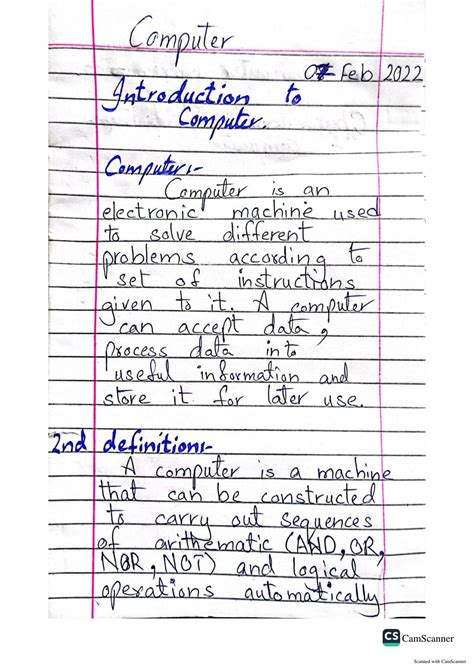 Computer
07 Feb 2022
Introduction to
Computer.
Computer:-
Computer is an
electronic machine used
to solve different
problems according to
set of instructions
given to it. A computer
can accept data,
process data into
useful information and
store it for later use.
2nd definition:-
A computer is a machine
that can be constructed
to carry out sequences
of arithematic (AND, OR,
NOR, NOT) and logical
operations automatically
CS CamScanner
Scanned with CamScanner